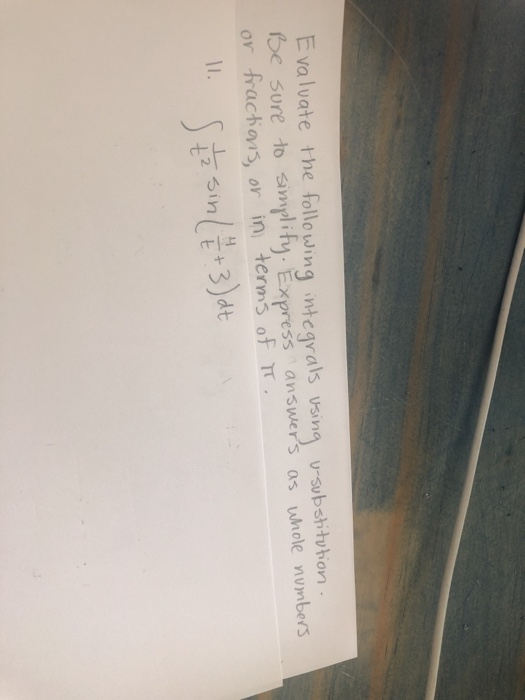 Evaluate the following integrals using u-substitution.
Be sure to simplify. Express answers as whole numbers
or fractions, or in terms of π.
11. ∫ 1/t² sin(4/t + 3) dt